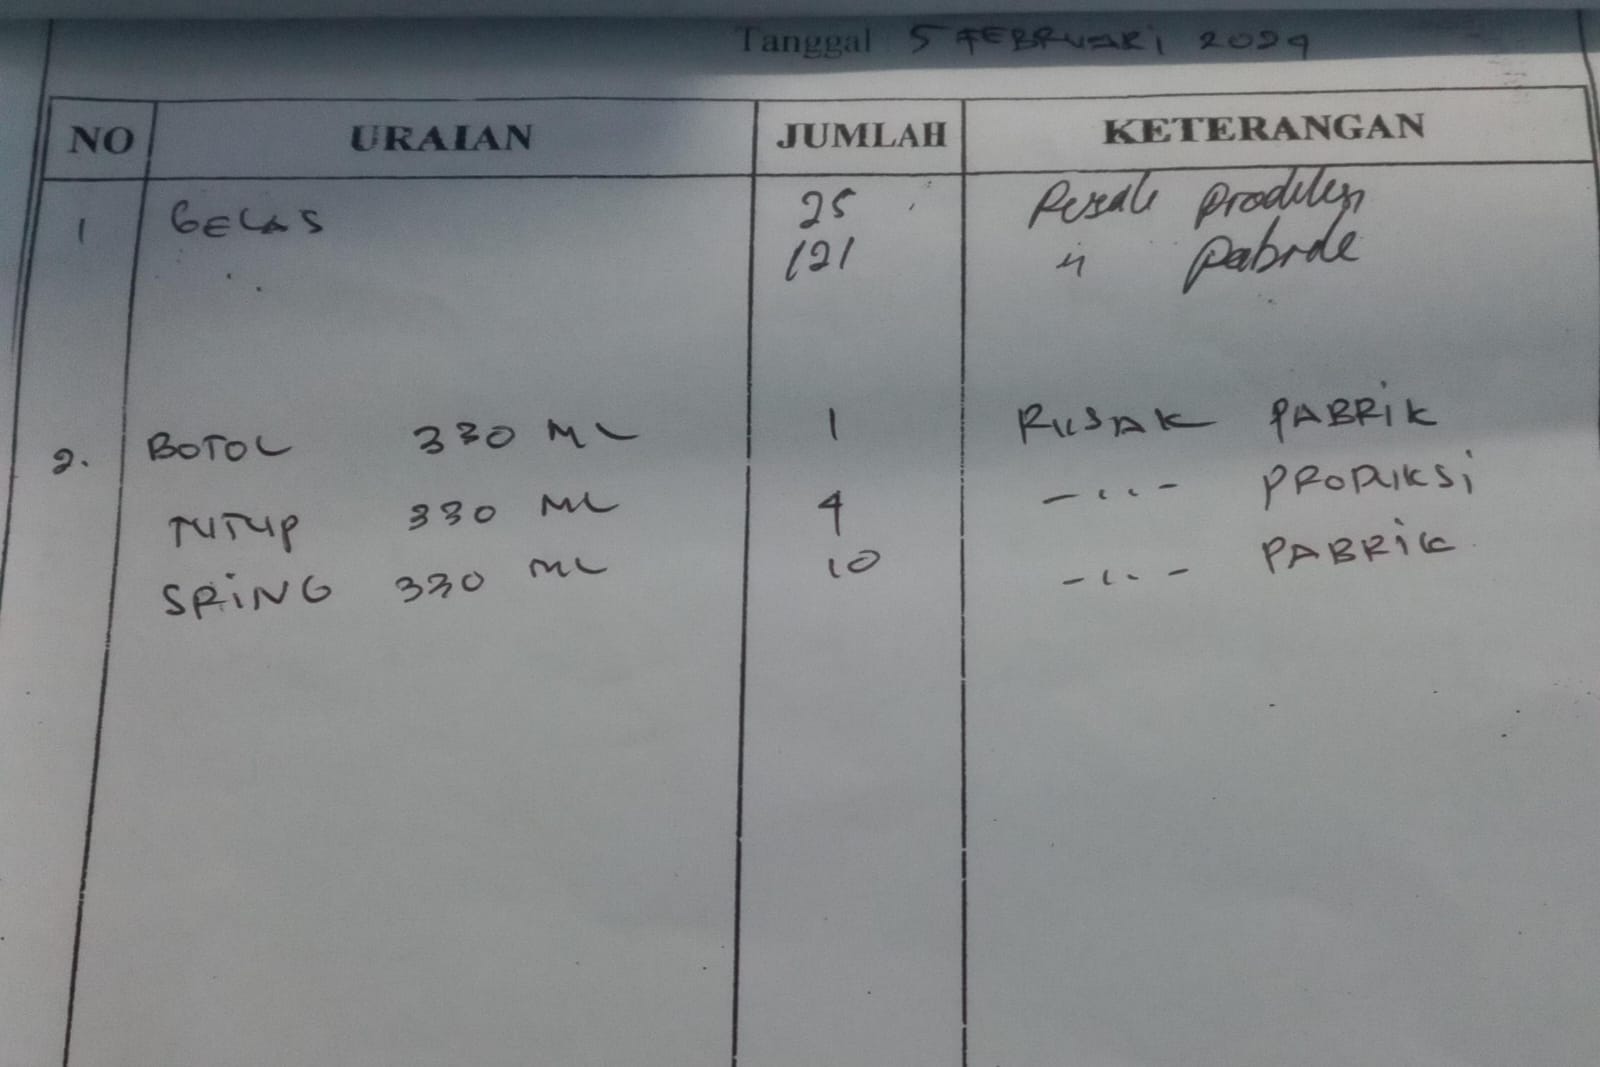 Tanggal 5 FEBRUARI 2024
NO URAIAN JUMLAH KETERANGAN
1 GELAS 25 Rusak Produksi
121 " pabrik
2. BOTOL 330 ML 1 RUSAK PABRIK
TUTUP 330 ML 4 -"- PRODUKSI
SRING 330 ML 10 -"- PABRIK